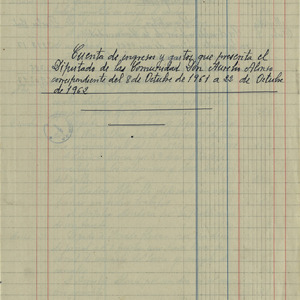 Cuenta de ingresos y gastos que presenta el
Diputado de las Comunidad Don Aurelio Alonso
correspondiente del 8 de Octubre de 1961 a 22 de Octubre
de 1962